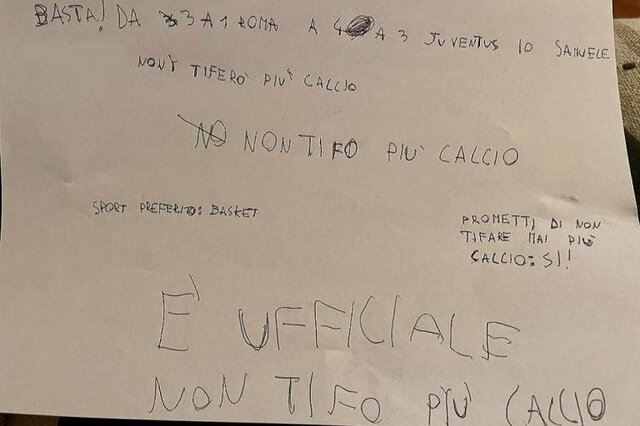 BASTA! DA 3 A 1 ROMA A 4 A 3 JUVENTUS IO SAMUELE
NON TIFERÒ PIÙ CALCIO
NO NON TIFO PIÙ CALCIO
SPORT PREFERITO: BASKET
PROMETTI DI NON
TIFARE MAI PIÙ
CALCIO: SI!
È UFFICIALE
NON TIFO PIÙ CALCIO